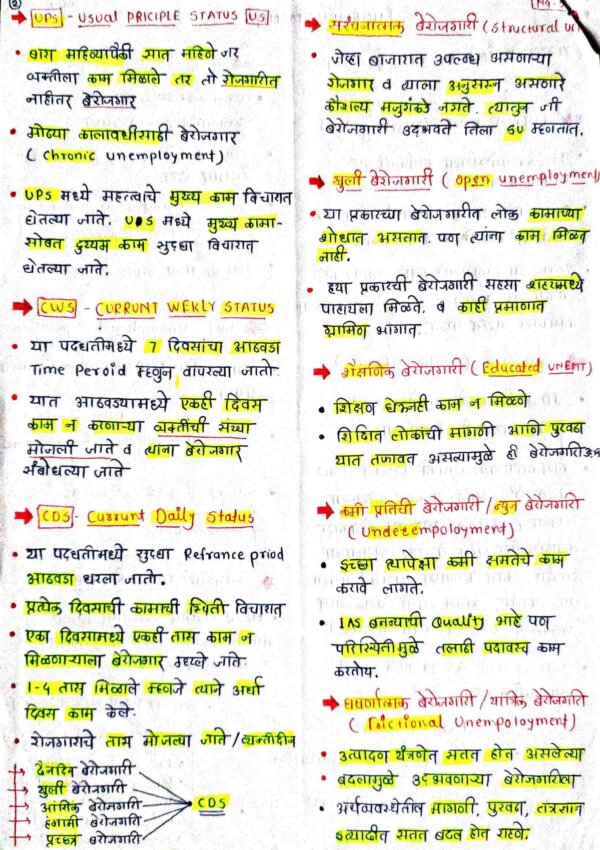 2
UPS - USUAL PRICIPLE STATUS [US]
• बारा महिन्यापैकी सात महिने जर
व्यक्तीला काम मिळाले तर तो रोजगारित
नाहीतर बेरोजगार
• मोठ्या कालावधीसाठी बेरोजगार
( Chronic unemployment)
• UPS मध्ये महत्वाचे मुख्य काम विचारात
घेतल्या जाते. UPS मध्ये मुख्य कामा-
सोबत दुय्यम काम सुध्दा विचारात
घेतल्या जाते.
CWS - CURRUNT WEKLY STATUS
• या पध्दतीमध्ये 7 दिवसांचा आठवडा
Time Peroid म्हणुन वापरल्या जातो
• यात आठवड्यामध्ये एकही दिवस
काम न करणाऱ्या व्यक्तींची संख्या
मोजली जाते व त्यांना बेरोजगार
संबोधल्या जाते
CDS - Currunt Daily Status
• या पध्दतीमध्ये सुध्दा Refrance priod
आठवडा धरला जातो.
• प्रत्येक दिवसाची कामाची स्थिती विचारात
• एका दिवसामध्ये एकही तास काम न
मिळणाऱ्याला बेरोजगार म्हटले जाते
• 1-4 तास मिळाले म्हणजे त्याने अर्धा
दिवस काम केले.
• रोजगाराचे तास मोजल्या जाते /
दैनंदिन बेरोजगारी
खुली बेरोजगारी
आंशिक बेरोजगारी
हंगामी बेरोजगारी
प्रच्छन्न बेरोजगारी
CDS
संरचनात्मक बेरोजगारी (Structural
जेव्हा बाजारात उपलब्ध असणाऱ्या
रोजगार व त्याला अनुसरुन असणारे
कौशल्य मजुरांकडे नसते. त्यातुन जी
बेरोजगारी उद्भवते तिला SU म्हणतात.
खुली बेरोजगारी ( Open unemployment)
• या प्रकारच्या बेरोजगारीत लोक कामाच्या
शोधात असतात. पण त्यांना काम मिळत
नाही.
• ह्या प्रकारची बेरोजगारी सहसा शहरामध्ये
पाहायला मिळते. व काही प्रमाणात
ग्रामिण भागात.
शैक्षणिक बेरोजगारी ( Educated UNEMT)
• शिक्षण घेऊनही काम न मिळणे
• शिक्षित लोकांची मागणी आणि पुरवठा
यात तफावत असल्यामुळे ही बेरोजगारी
कमी प्रतिची बेरोजगारी / न्युन बेरोजगारी
( Undereempoloyment)
• इच्छा त्यापेक्षा कमी क्षमतेचे काम
करावे लागते.
• IAS बनन्याची Quality आहे पण
परिस्थितीमुळे तलाठी पदावरच काम
करतोय.
घर्षणात्मक बेरोजगारी / यांत्रिक बेरोजगारी
( Frictional Unempoloyment)
• उत्पादण यंत्रणेत सतत होत असलेल्या
• बदलामुळे उद्भवणाऱ्या बेरोजगारीला
• अर्थव्यवस्थेतील मागणी, पुरवठा, तंत्रज्ञान
इत्यादीत सतत बदल होत राहते.